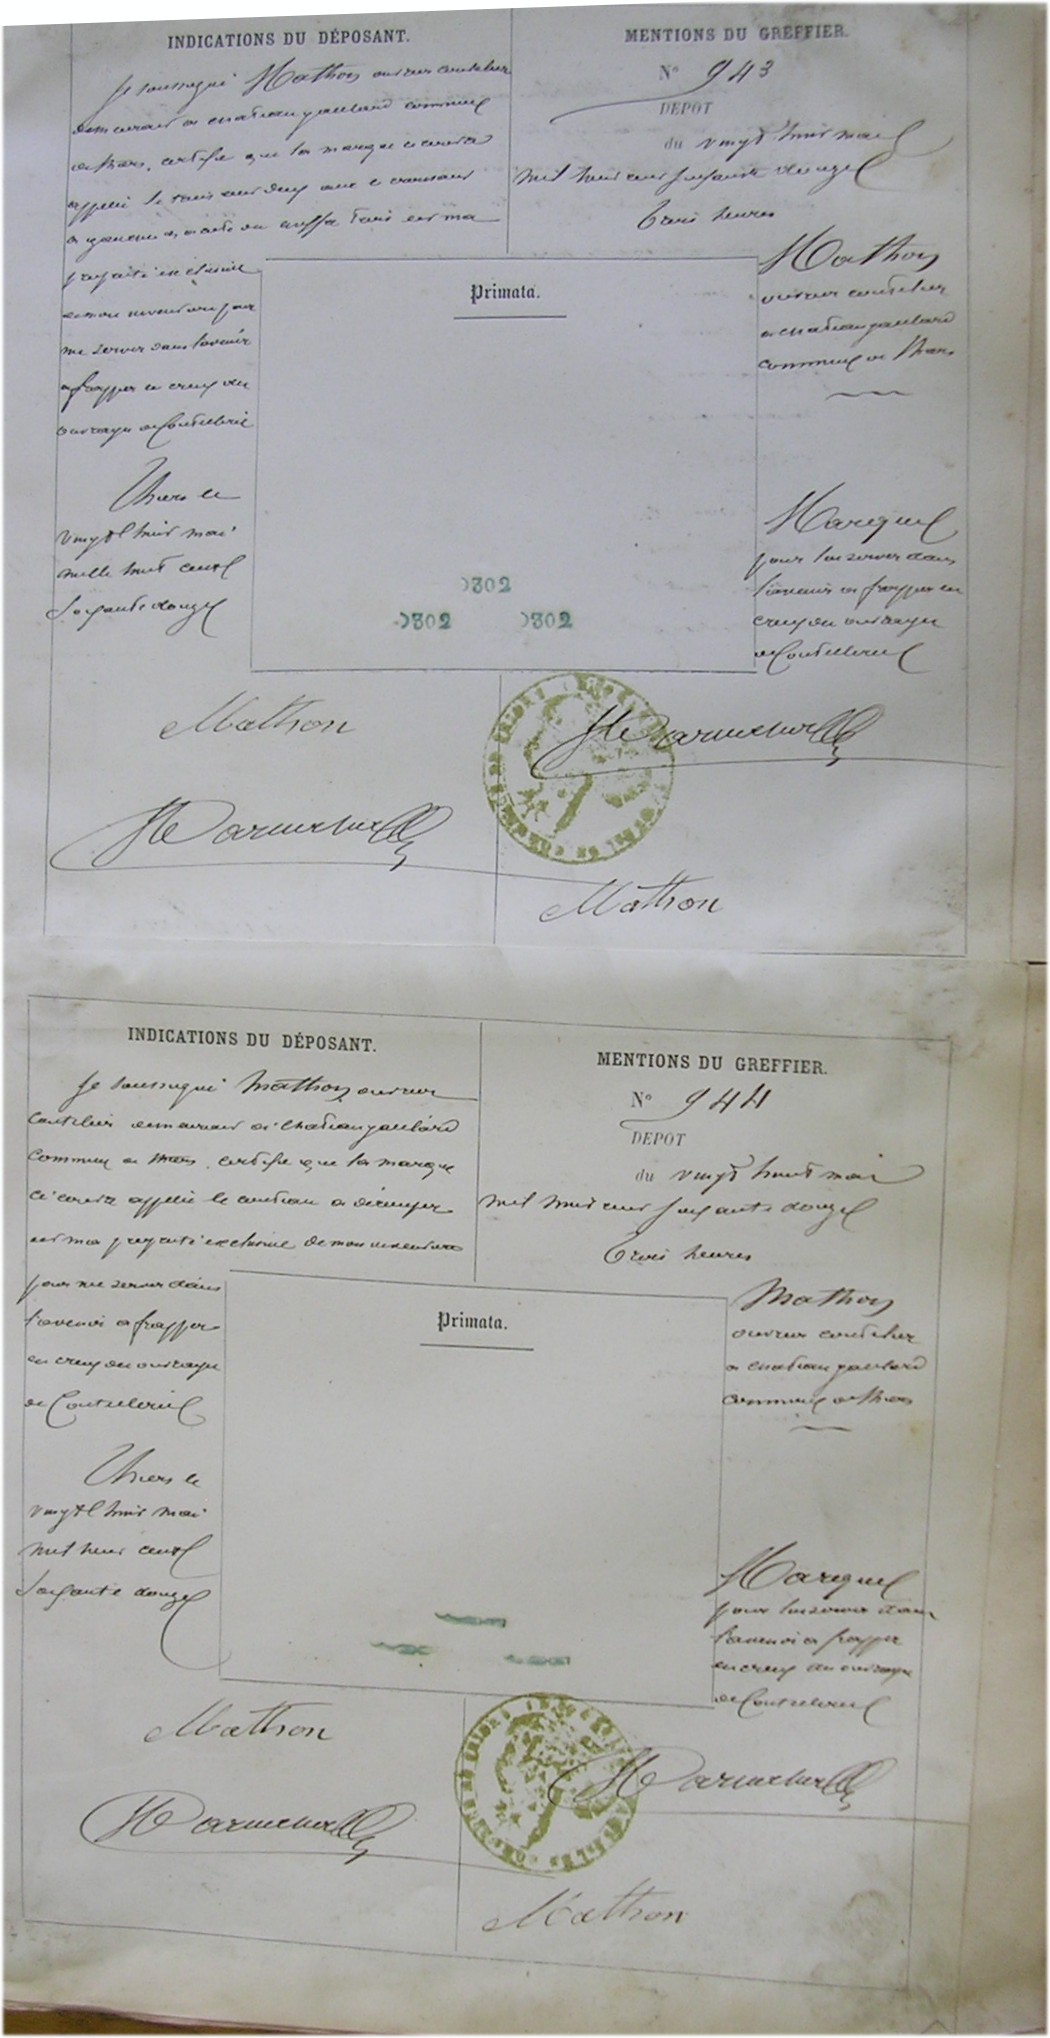 INDICATIONS DU DÉPOSANT.
Je soussigné Mathon ouvrier coutelier
demeurant à chateaugaillard commune
de thiers, certifie que la marque ci contre
appelé le trois cent deux avec le croissant
à gauche
propriété exclusive
pour
me servir dans l'avenir
à frapper en creux des
ouvrages de Coutellerie
Thiers le
vingt huit mai
mille huit cent
soixante douze
Mathon
MENTIONS DU GREFFIER.
No 943
DEPOT
du vingt huit mai
mil huit cent soixante douze
trois heures
Mathon
ouvrier coutelier
à chateaugaillard
commune de thiers
Primata.
302
302 302
Marque
pour lui servir dans
l'avenir à frapper en
creux des ouvrages
de Coutellerie
Mathon
INDICATIONS DU DÉPOSANT.
Je soussigné Mathon ouvrier
coutelier demeurant à chateaugaillard
commune de thiers, certifie que la marque
ci contre appelé le couteau à découper
est ma propriété exclusive de mon invention
pour me servir dans
l'avenir à frapper
en creux des ouvrages
de Coutellerie
Thiers le
vingt huit mai
mil huit cent
soixante douze
Mathon
MENTIONS DU GREFFIER.
No 944
DEPOT
du vingt huit mai
mil huit cent soixante douze
trois heures
Mathon
ouvrier coutelier
à chateaugaillard
commune de thiers
Primata.
Marque
pour lui servir dans
l'avenir à frapper
en creux des ouvrages
de Coutellerie
Mathon